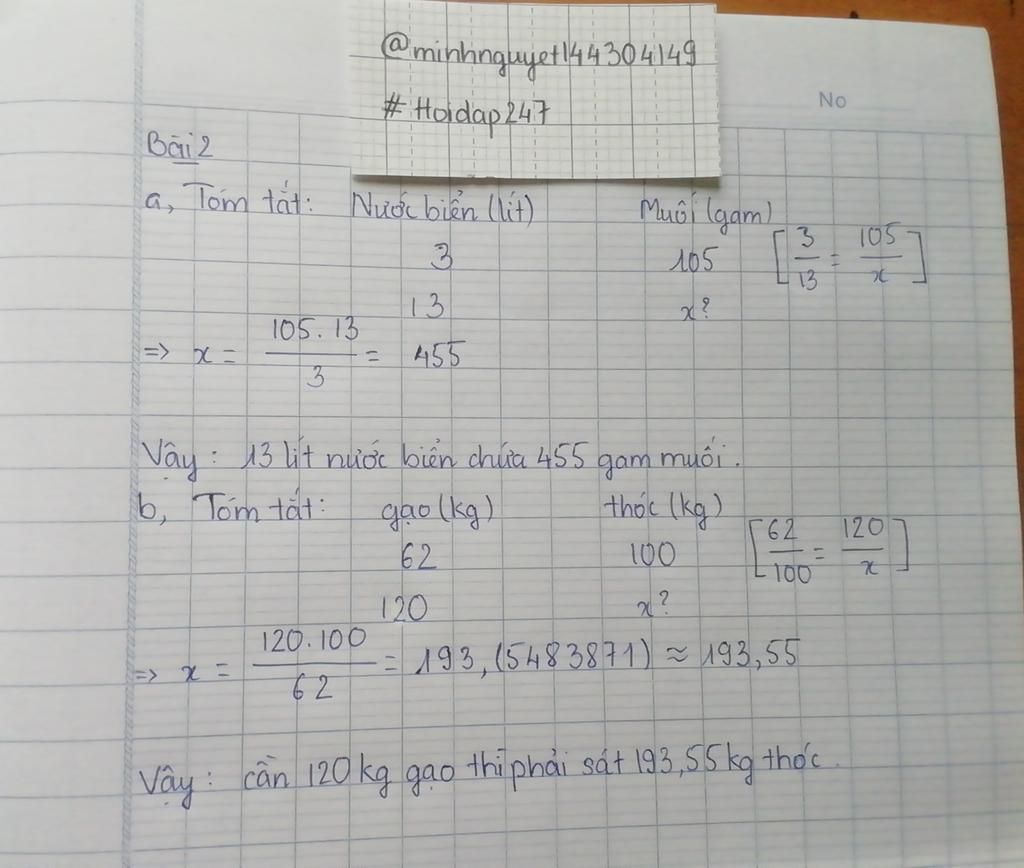 @minhnguyet144304149
#Hoidap247
No
Bài 2
a, Tóm tắt: Nước biển (lít) Muối (gam)
3 105 [3/13 = 105/x]
13 x?
=> x = 105.13/3 = 455
Vậy: 13 lít nước biển chứa 455 gam muối.
b, Tóm tắt: gạo (kg) thóc (kg)
62 100 [62/100 = 120/x]
120 x?
=> x = 120.100/62 = 193,(5483871) ≈ 193,55
Vậy: cần 120kg gạo thì phải sát 193,55kg thóc.